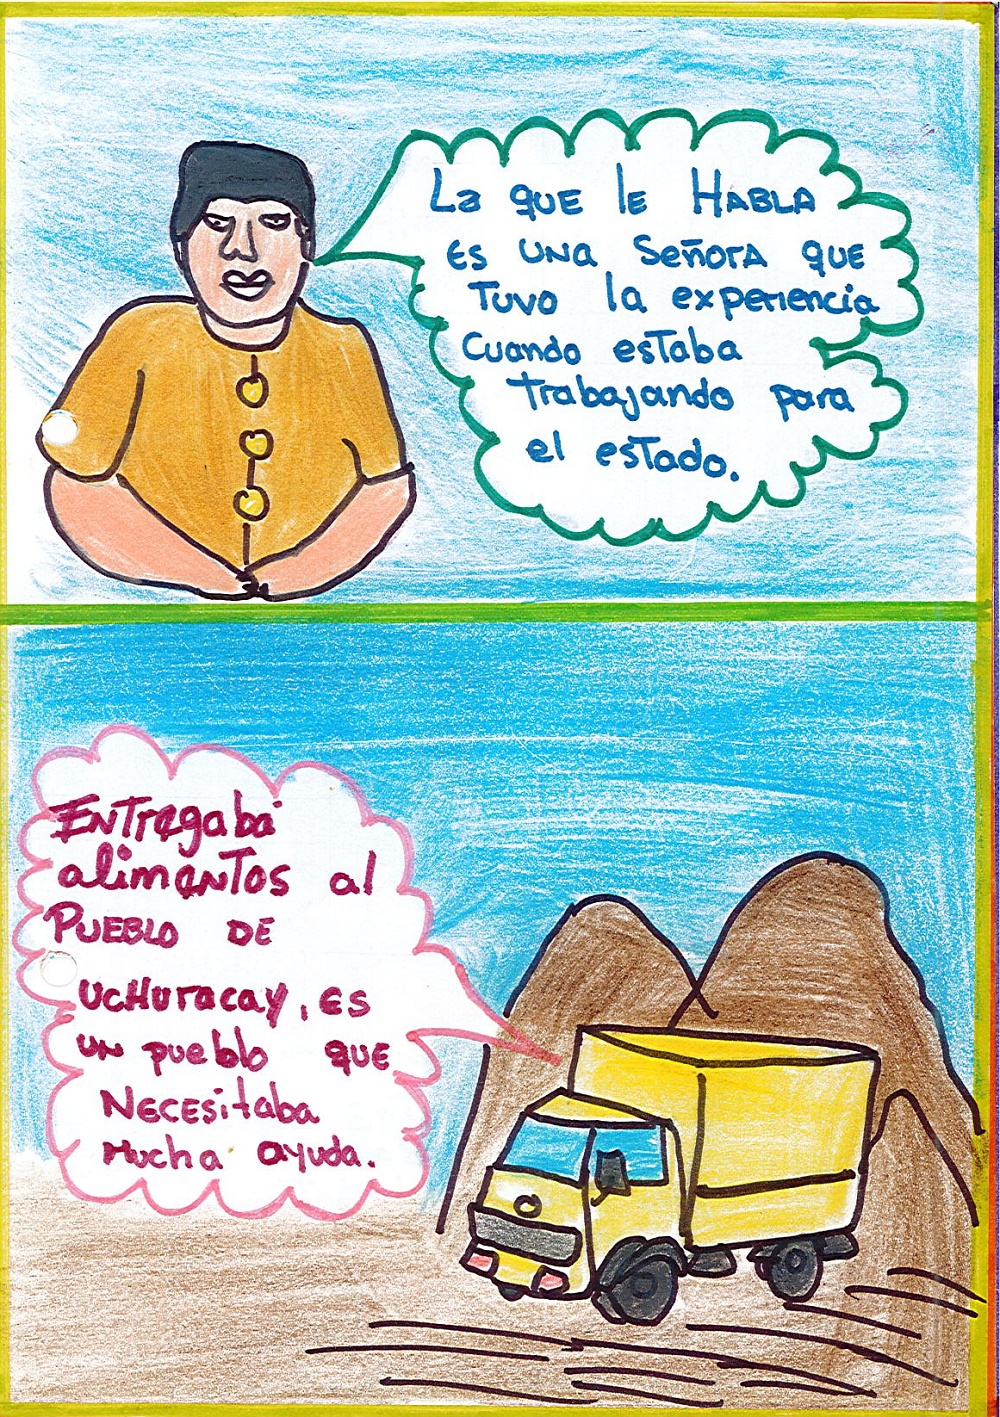 La que le Habla
es una Señora que
Tuvo la experiencia
Cuando estaba
trabajando para
el estado.
Entregaba
alimentos al
Pueblo de
Uchuracay, es
un pueblo que
Necesitaba
Mucha ayuda.